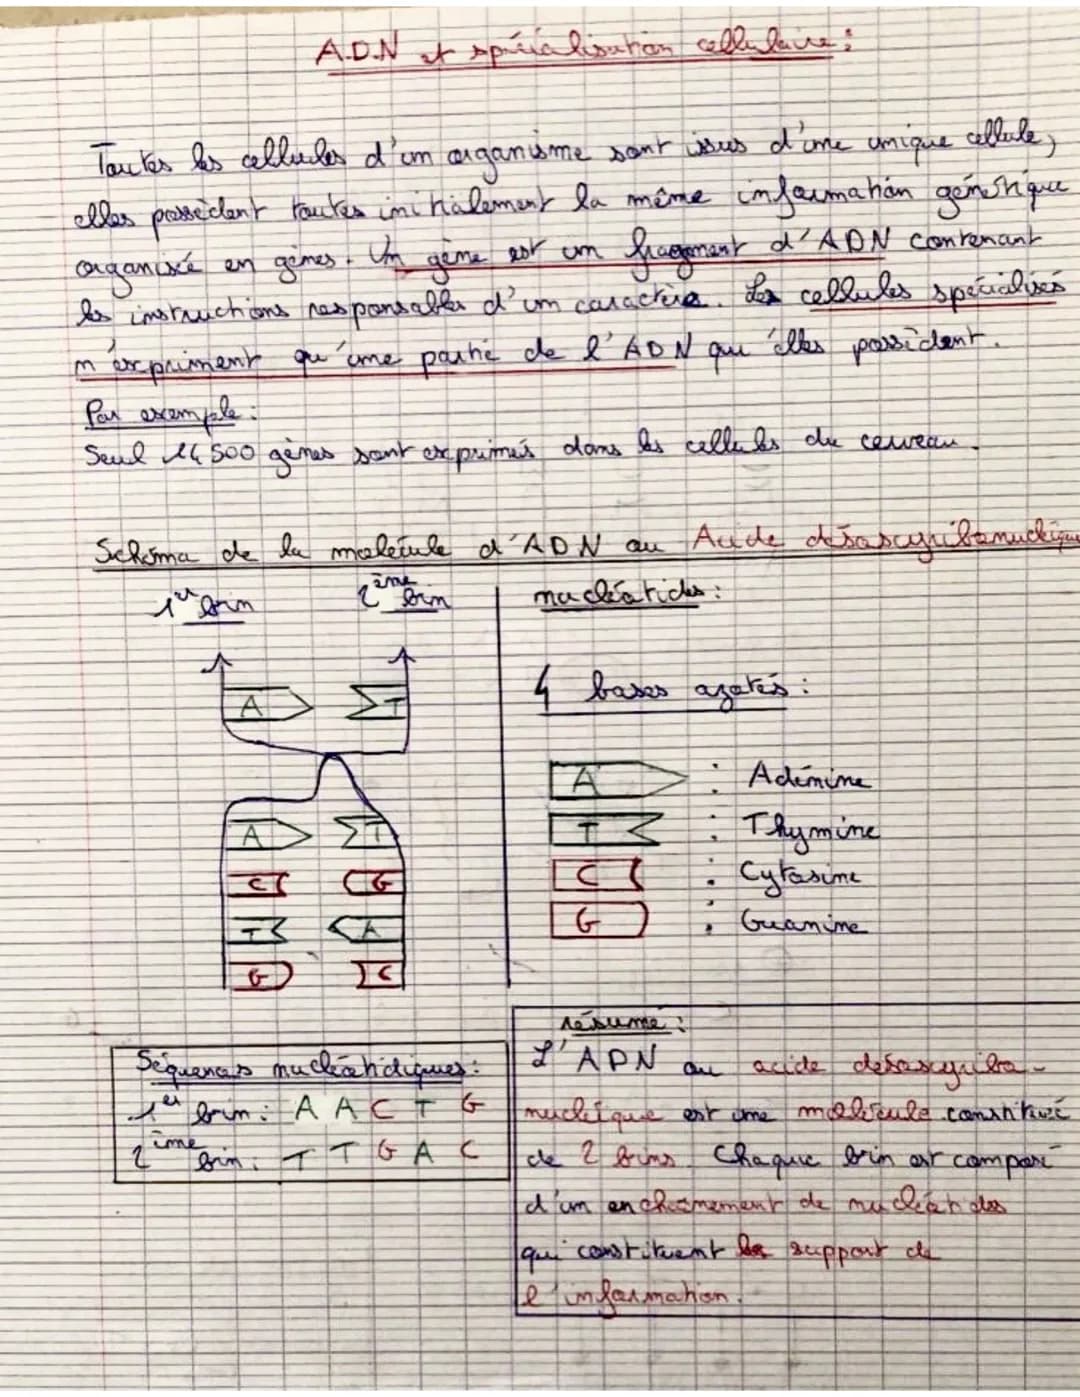 A.D.N et spécialisation cellulaire :
Toutes les cellules d'un organisme sont issus d'une unique cellule,
elles possèdent toutes initialement la même information génétique
organisé en gènes. Un gène est un fragment d'ADN contenant
les instructions responsables d'un caractère. Les cellules spécialisés
n'expriment qu'une partie de l'ADN qu'elles possèdent.
Par exemple :
Seul 14 500 gènes sont exprimés dans les cellules du cerveau.
Schéma de la molécule d'ADN ou Acide désoxyribonucléique
1er brin 2ème brin
A T
A T
C G
T A
G C
nucléotides :
4 bases azotés :
A : Adénine
T : Thymine
C : Cytosine
G : Guanine
Séquences nucléotidiques :
1er brin : A A C T G
2ème brin : T T G A C
résumé :
L'ADN ou acide désoxyribo-
nucléique est une molécule constitué
de 2 brins. Chaque brin est composé
d'un enchaînement de nucléotides
qui constituent le support de
l'information.